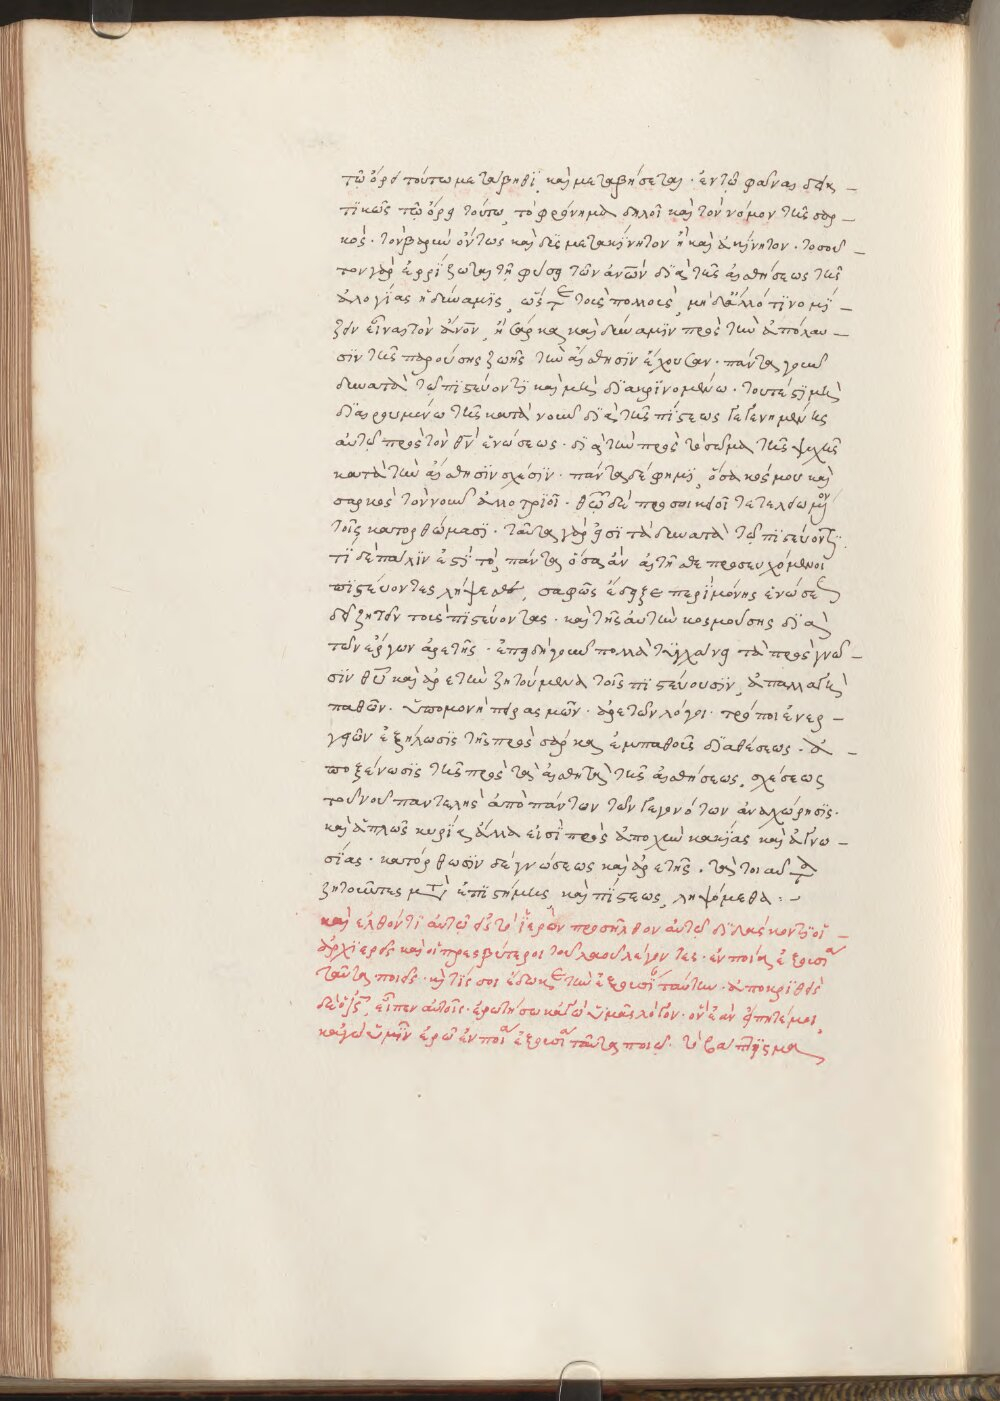 τῷ ὄρει τούτω μετάβηθϊ, καὶ μεταβήσεται· ἐν τῷ φάναι δεικ –
τϊκῶς τῷ ὄρει τούτω, τὸ φρόνημα δηλοῖ καὶ τὸν νόμον τῆς σαρ –
κός· τὸν βαρὺν ὄντως καὶ δϋσμετακίνητον ἢ καὶ ἀκίνητον· τοσοῦ
τον γὰρ ἐρρίζωται τῇ φύσει τῶν ἀνων δϊὰ τῆς αἰσθήσεως τῆς
ἀλογίας ἡ δύναμϊς, ὥστε τοῖς πολλοῖς, μὴ δὲ ἄλλό τϊ νομί –
ζειν εἶναι τὸν ἄνον, ἢ σάρκα, καὶ δύναμϊν πρὸς τὴν ἀπόλαυ –
σϊν τῆς παρούσης ζωῆς τὴν αἴσθησϊν ἔχουσαν· πάντα γοῦν
δυνατὰ τῷ πϊστεύοντϊ καὶ μὴ δϊακρϊνομένω· τουτέστϊ μὴ
δϊαιρουμένω τῆς κατὰ νοῦν δϊὰ τῆς πίστεως γεγενημένης
αὐτῷ πρὸς τὸν θν ἑνώσεως· δϊὰ τὴν πρὸς τὸ σῶμα τῆς ψυχῆς
κατὰ τὴν αἴσθησϊν σχέσϊν· πάντα δέ φημϊ, ὅσα κόσμου καὶ
σαρκὸς τὸν νοῦν ἀλλοτρϊοῖ· θῶ δὲ προσοικειοῖ τετελειωμένον
τοῖς κατορθώμασϊ· ταῦτα γάρ εἰσϊ τὰ δυνατὰ τῷ πϊστεύοντϊ·
τϊ δὲ πάλϊν ἐστϊ τὸ, πάντα ὅσα ἀν αἰτῆσθε προσευχόμενοι
πϊστεύοντες λήψεσθε, σαφῶς ἔδειξε περὶ μόνης ἑνώσεως
δεῖ ζητεῖν τοὺς πϊστεύοντας· καὶ τῆς αὐτὴν κοσμούσης δϊὰ
τῶν ἔργων ἀρετῆς· ἐπειδὴ γοῦν πολλὰ τϋγχάνει τὰ πρὸς γνῶ –
σϊν θῦ καὶ ἀρετὴν ζητούμενα τοῖς πϊστεύουσϊν, ἀπαλλαγὴ
παθῶν· ὑπομονὴ πειρασμῶν· ἀρετῶν λόγοι· τρόποι ἐνερ –
γειῶν ἐξήλωσϊς τῆς πρὸς σάρκα ἐμπαθοῦς δϊαθέσεως· ἀ –
ποξένωσϊς τῆς πρὸς τὰ αἰσθητὰ τῆς αἰσθήσεως, σχέσεως
τοῦ νοῦ παντελὴς ἀπὸ πάντων τῶν γεγονότων ἀναχώρησϊς·
καὶ ἁπλῶς κυρία ἄλλα εἰσὶ πρὸς ἀποχὴν κακίας καὶ ἀγνω –
σίας· κατόρθωσϊν δὲ γνώσεως καὶ ἀρετῆς· τὰ τοιαῦτα
ζητοῦντες μετὰ ἐπϊστήμης, καὶ πίστεως, ληψόμεθα :–
καὶ ἐλθόντϊ αὐτῷ εἰς τὸ ἱερὸν προσῆλθον αὐτῷ δϊδάσκοντϊ οἱ –
ἀρχϊερεῖς καὶ οἱ πρεσβύτεροι τοῦ λαοῦ λέγοντες· ἐν ποίᾳ ἐξουσία
ταῦτα ποιεῖς· καὶ τίς σοι ἔδωκε τὴν ἐξουσίαν ταύτην· ἀποκρϊθεὶς
δὲ ὁ ις, εἶπεν αὐτοῖς· ἐρωτήσω κἀγὼ ὑμᾶς λόγον· ὃν ἐὰν εἴπητέ μοι,
κἀγὼ ὑμῖν ἐρῶ ἐν ποία ἐξουσία ταῦτα ποιῶ· τὸ βάπτϊσμα